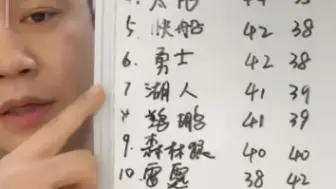 5. 快船 42 38
6. 勇士 42 38
7 湖人 41 39
8 鹈鹕 41 39
9. 森林狼 40 40
10. 雷霆 38 42